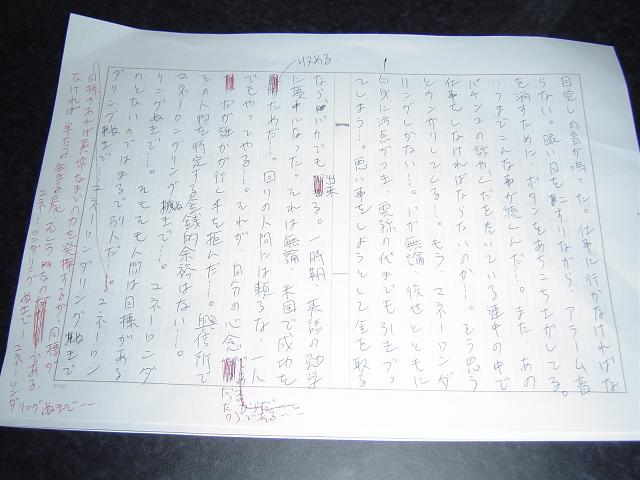 目覚しの音が鳴った。仕事に行かなければな
らない。眠い目をこすりながら、アラーム音
を消すために、ボタンをあちこちさがしてる。
いつまでこんな事が続くんだ…。また、あの
パチンコの話やくだを巻いている連中の中で
仕事をしなければならないのか…。そう思う
とウンザリしてくる…。もう、マネーロンダ
リングしかない…。だが無論 彼せとともに
自分に汚点がつき、裏稼の代までも引きづっ
てしまう…。思い事をしようとして金を取る
なら バカでも出来る。一時期、英語の勉学
に夢中になった。それは無論、米国で成功を
収める
ためだ…。回りの人間には頼るな、一人
でもやってやる…。それが、自分の心念
だったからである…
だが誰かが行し手を拒んだ…。興信所で
その人物を特定する金銭的余裕はない…。
マネーロンダリングぬきで…。マネーロンダ
リングぬきで…。そもそも人間は目標がある
のとないのではまるで別人だ…。マネーロン
ダリングぬきで…マネーロンダリングぬきで
目標があれば異常なまでの力を発揮するが、目標が
なければ 生きる屍 である。
マネーロンダリングぬきで…マネーロンダリングぬきで…